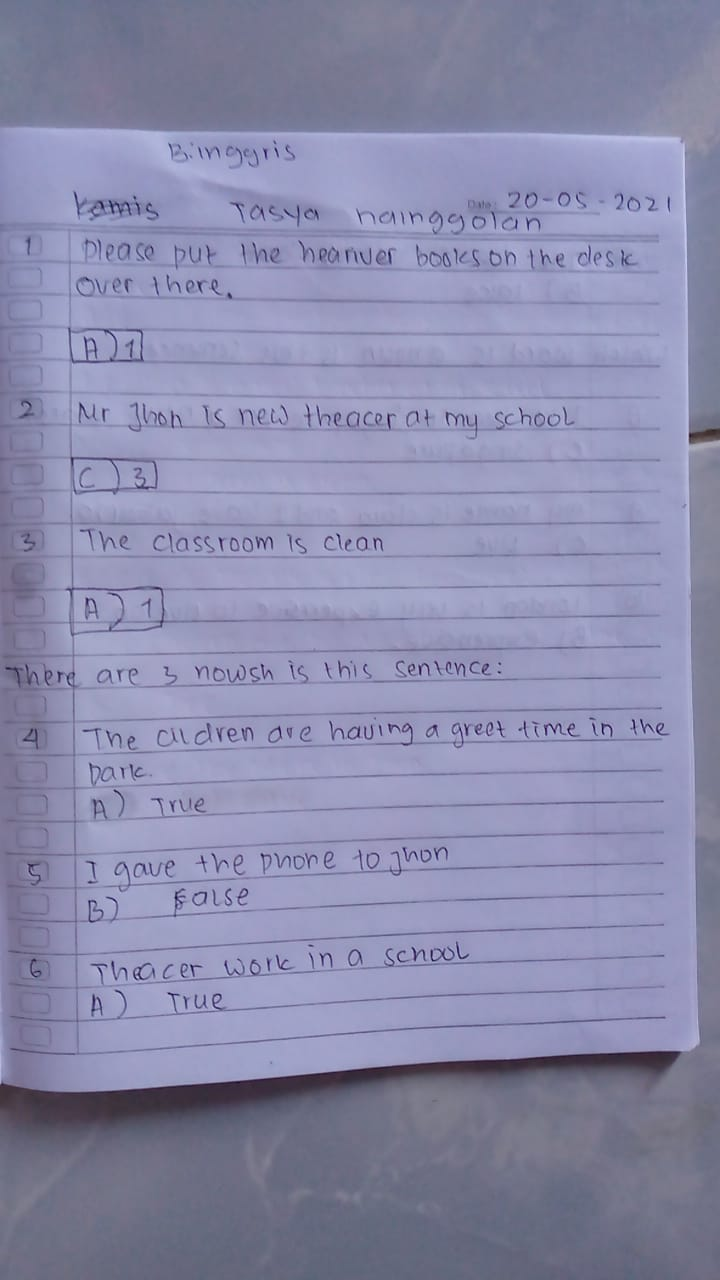 B.inggris
Kamis Tasya nainggolan Date: 20-05-2021
1 Please put the heanver books on the desk
over there.
A) 1
2 Mr Jhon is new theacer at my school
C) 3
3 The classroom is clean
A) 1
There are 3 nowsh is this sentence:
4 The cildren are having a greet time in the
park.
A) True
5 I gave the phone to jhon
B) False
6 Theacer work in a school
A) True